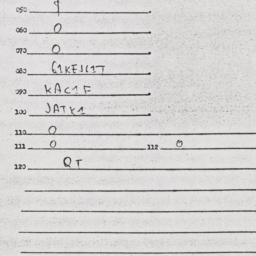 050 9
060 0
070 0
080 61KEJ61T
090 KAC1F
100 JATK1
110 0
111 0 112 0
120 QT